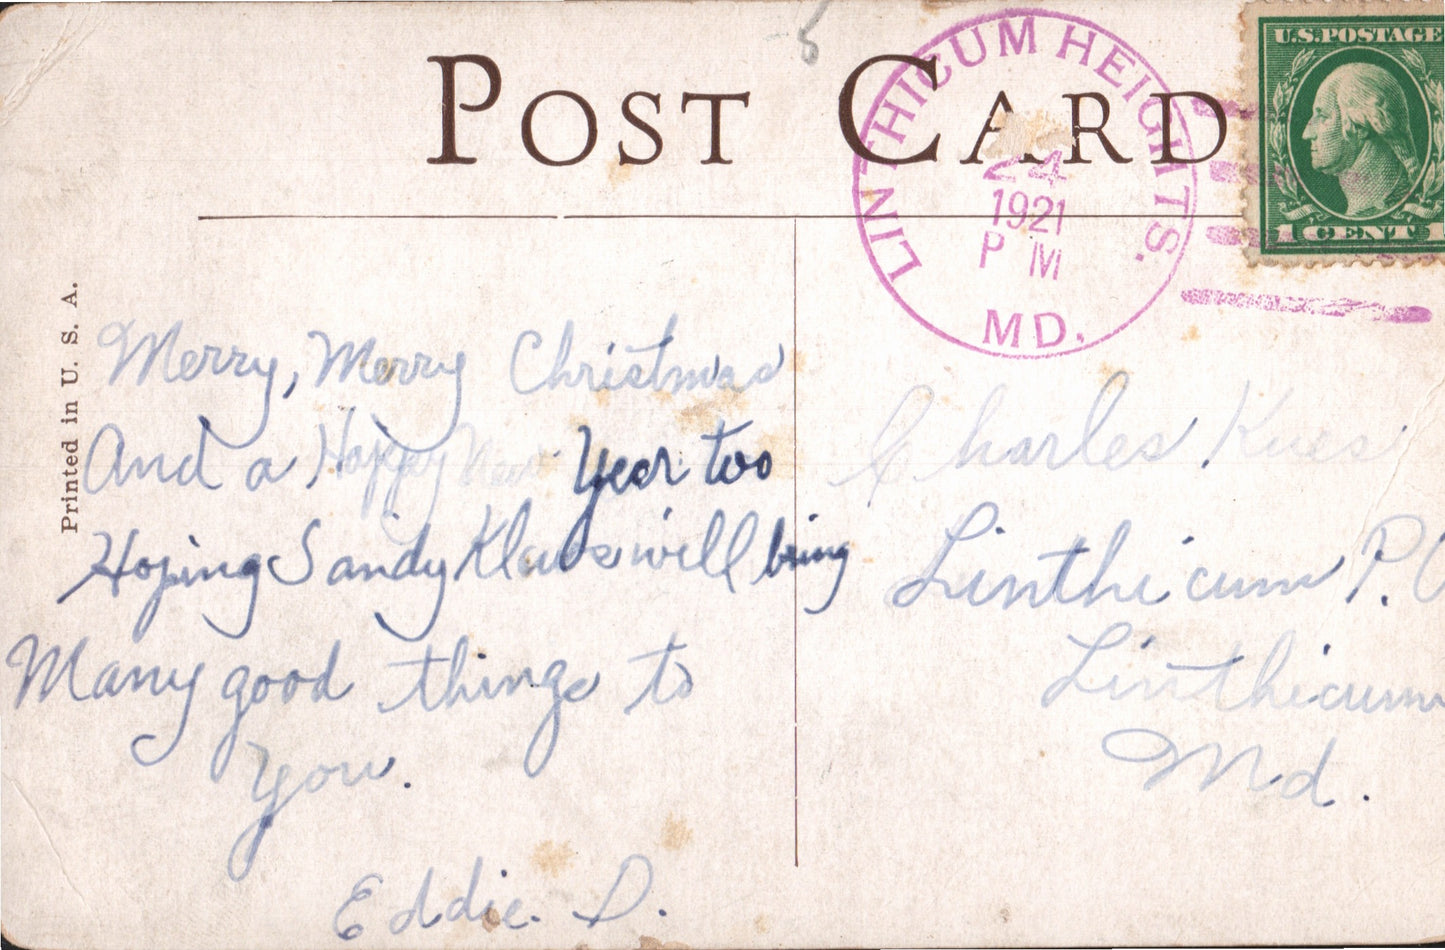 POST CARD
U.S.POSTAGE
1 CENT 1
LINTHICUM HEIGHTS.
24
1921
P M
MD.
Printed in U. S. A.
Merry, Merry Christmas
And a Happy New Year too
Hoping Sandy Klaus will bring
Many good things to
you.
Eddie. D.
Charles
Linthicum P.O
Linthicum
Md.